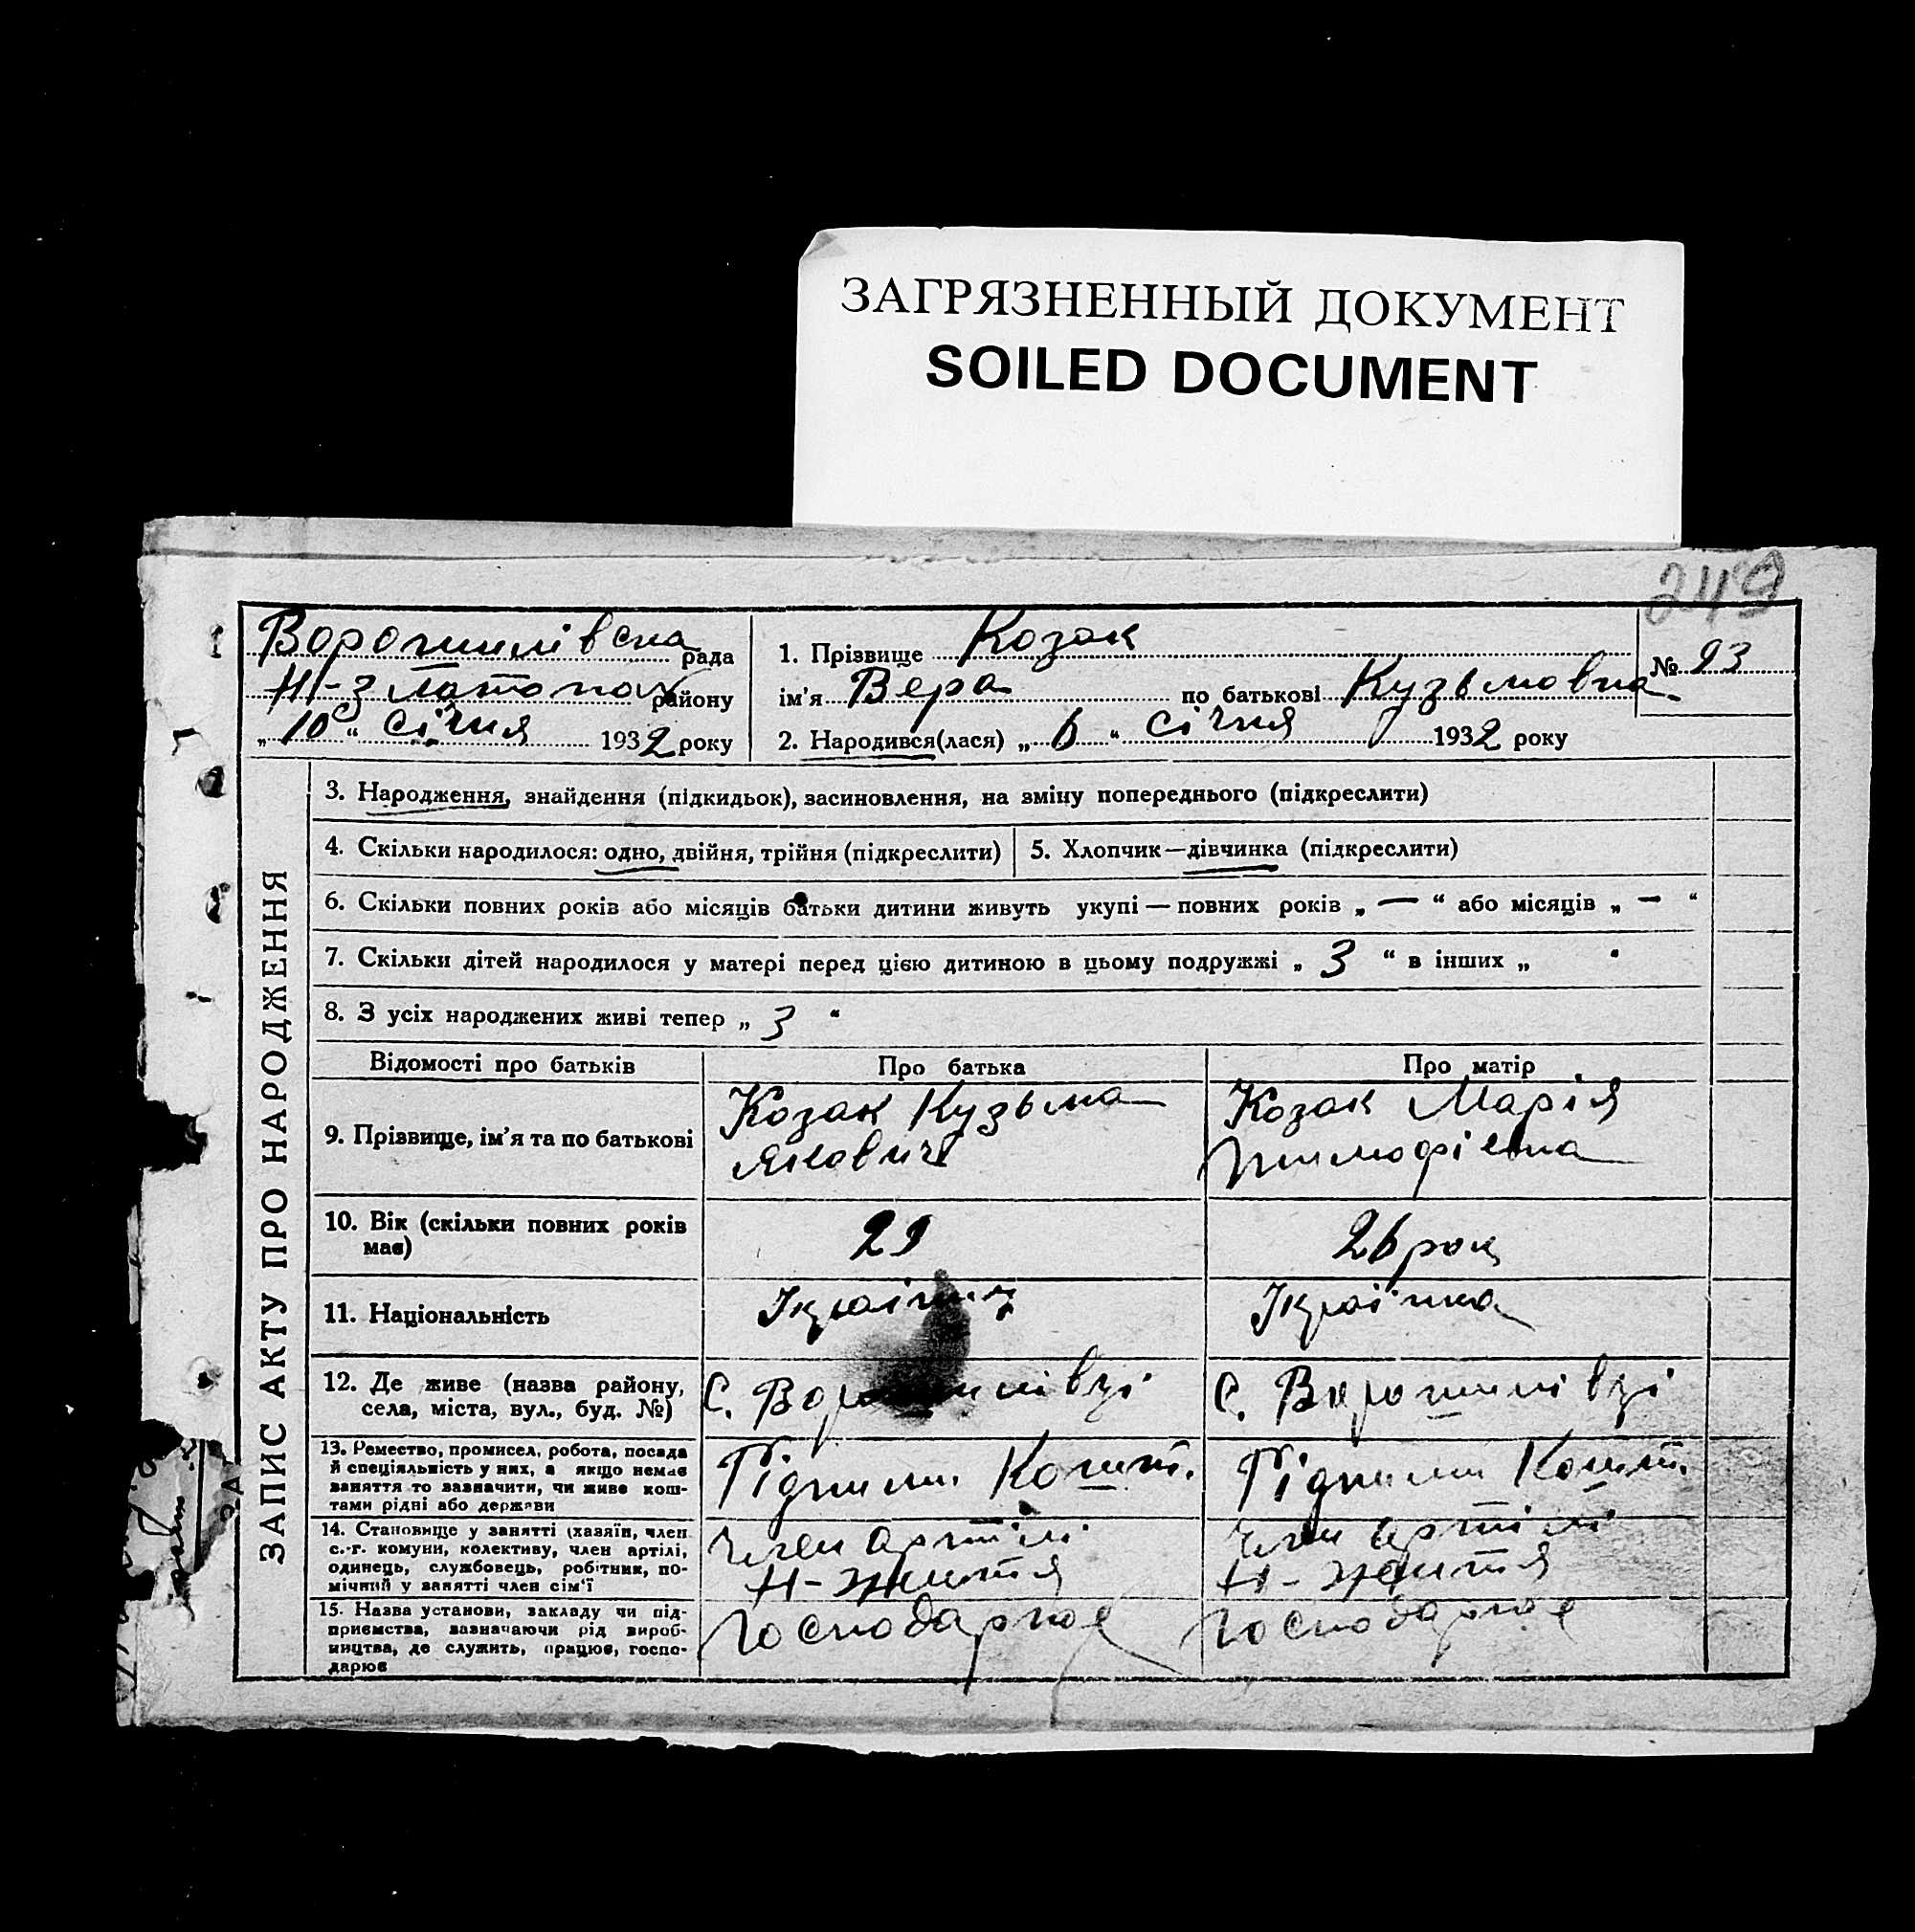 ЗАГРЯЗНЕННЫЙ ДОКУМЕНТ
SOILED DOCUMENT
249
Ворошилівска рада
района
„10“ січня 1932 року
1. Прізвище Козак
ім'я Вера по батькові Кузьмовна
№ 23
2. Народився(лася) „6“ січня 1932 року
ЗАПИС АКТУ ПРО НАРОДЖЕННЯ
3. Народження, знайдення (підкидьок), засиновлення, на зміну попереднього (підкреслити)
4. Скільки народилося: одно, двійня, трійня (підкреслити)
5. Хлопчик—дівчинка (підкреслити)
6. Скільки повних років або місяців батьки дитини живуть укупі — повних років „ — “ або місяців „ — “
7. Скільки дітей народилося у матері перед цією дитиною в цьому подружжі „ 3 “ в інших „ “
8. З усіх народжених живі тепер „ 3 “
Відомості про батьків
Про батька
Про матір
9. Прізвище, ім'я та по батькові
Козак Кузьма
Якович
Козак Марія
Тимофіевна
10. Вік (скільки повних років
має)
29
26 рок
11. Національність
Українка
12. Де живе (назва району,
села, міста, вул., буд. №)
С. Ворошилівці
С. Ворошилівці
13. Ремество, промисел, робота, посада
й спеціяльність у них, а якщо немає
заняття то зазначити, чи живе кош-
тами рідні або держави
Рідними Кошт.
Рідними Кошт.
14. Становище у занятті (хазяїн, член
с.-г. комуни, колективу, член артілі,
одинець, службовець, робітник, по-
мічний у занятті член сім'ї
Член артілі
Н-життя
Член артілі
Н-життя
15. Назва установи, закладу чи під-
приємства, зазначаючи рід вироб-
ництва, де служить, працює, госпо-
дарює
Господарює
Господарює